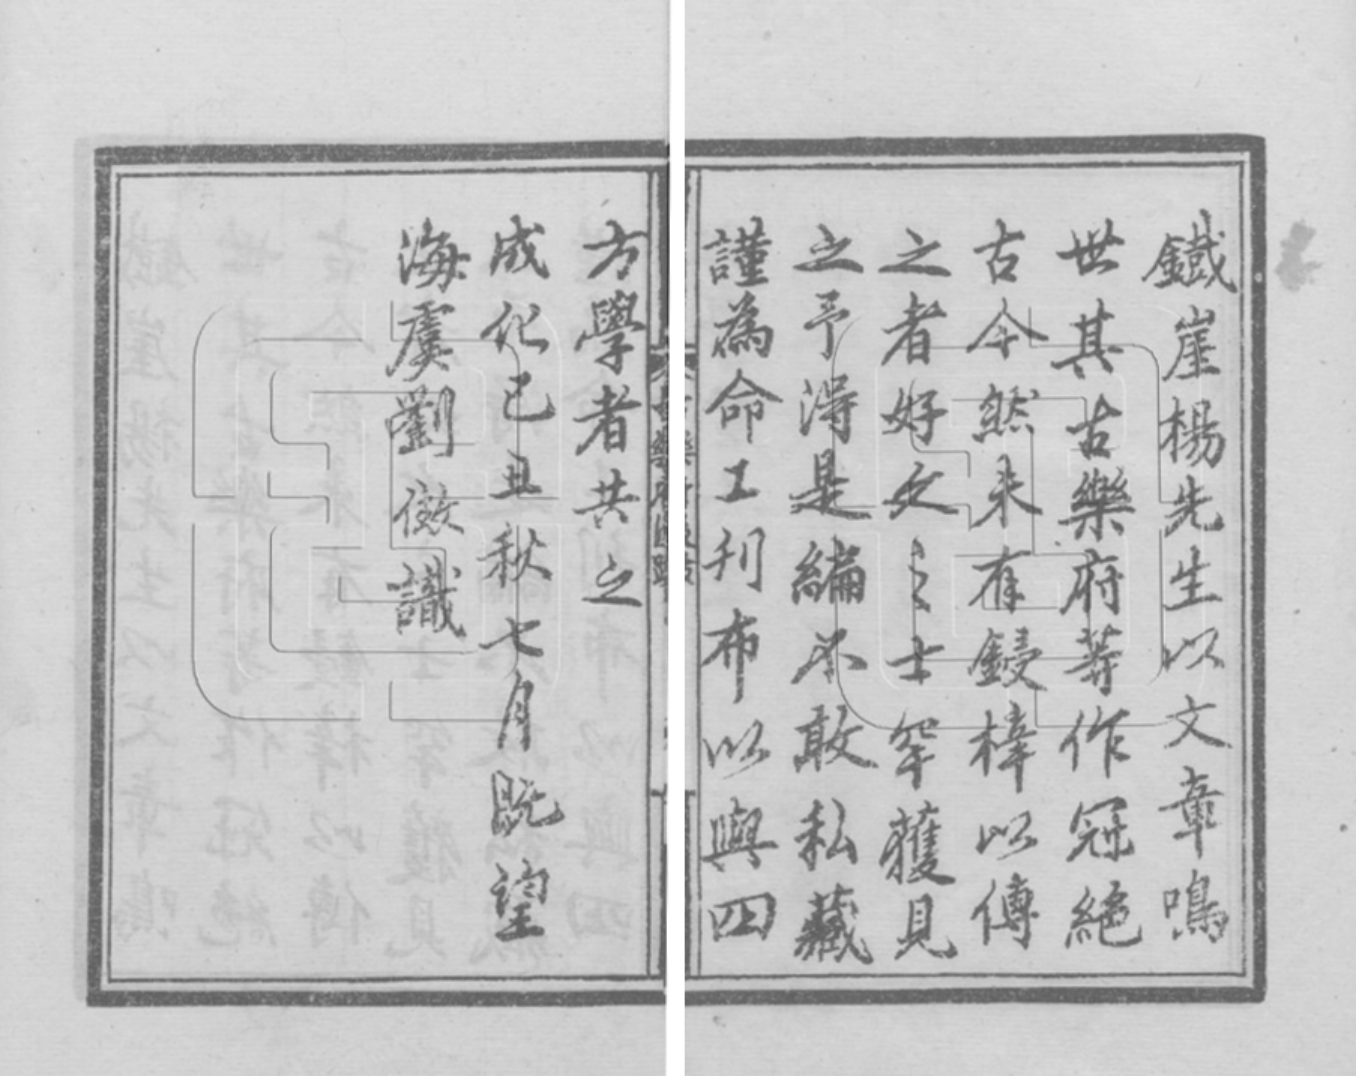 鐵崖楊先生以文章鳴
世其古樂府等作冠絕
古今然未有鋟梓以傳
之者好文之士罕獲見
之予得是編不敢私藏
謹為命工刊布以與四
方學者共之
成化己丑秋七月既望
海虞劉傚識